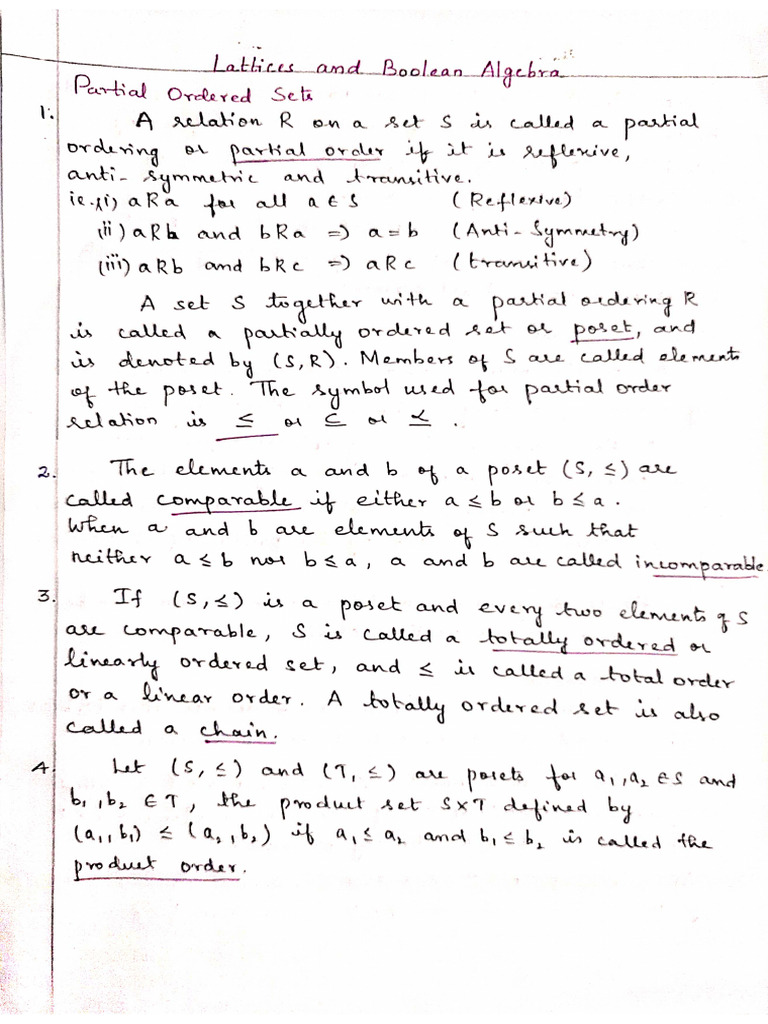 Lattices and Boolean Algebra
Partial Ordered Sets
1. A relation R on a set S is called a partial
ordering or partial order if it is reflexive,
anti-symmetric and transitive.
ie.,(i) aRa for all a ∈ S (Reflexive)
(ii) aRb and bRa => a = b (Anti-Symmetry)
(iii) aRb and bRc => aRc (transitive)
A set S together with a partial ordering R
is called a partially ordered set or poset, and
is denoted by (S,R). Members of S are called elements
of the poset. The symbol used for partial order
relation is ≤ or ⊆ or ≼.
2. The elements a and b of a poset (S, ≤) are
called comparable if either a ≤ b or b ≤ a.
When a and b are elements of S such that
neither a ≤ b nor b ≤ a, a and b are called incomparable.
3. If (S,≤) is a poset and every two elements of S
are comparable, S is called a totally ordered or
linearly ordered set, and ≤ is called a total order
or a linear order. A totally ordered set is also
called a chain.
4. Let (S,≤) and (T,≤) are posets for a₁,a₂ ∈ S and
b₁,b₂ ∈ T, the product set S×T defined by
(a₁,b₁) ≤ (a₂,b₂) if a₁ ≤ a₂ and b₁ ≤ b₂ is called the
product order.